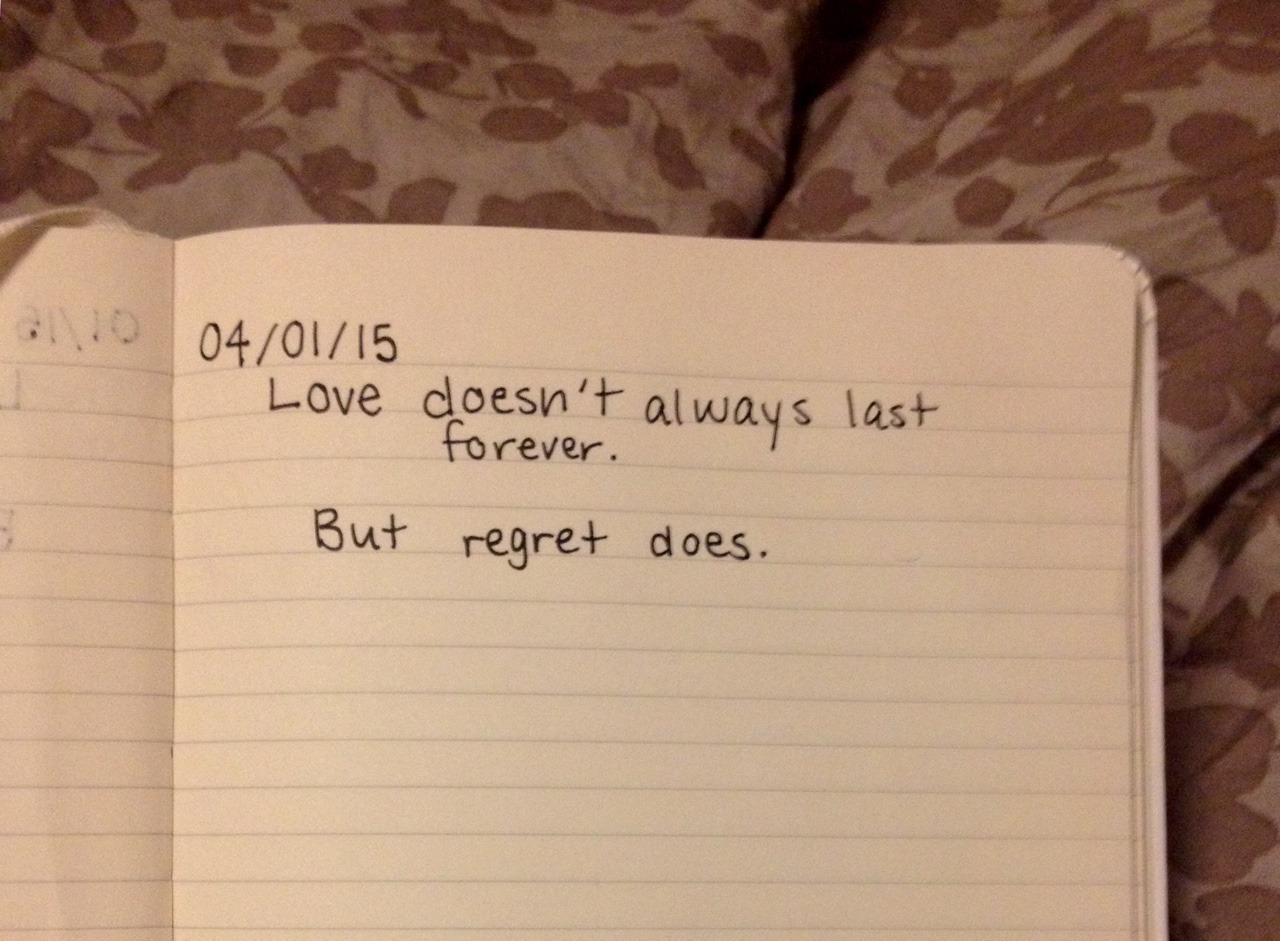 04/01/15
Love doesn't always last
forever.
But regret does.